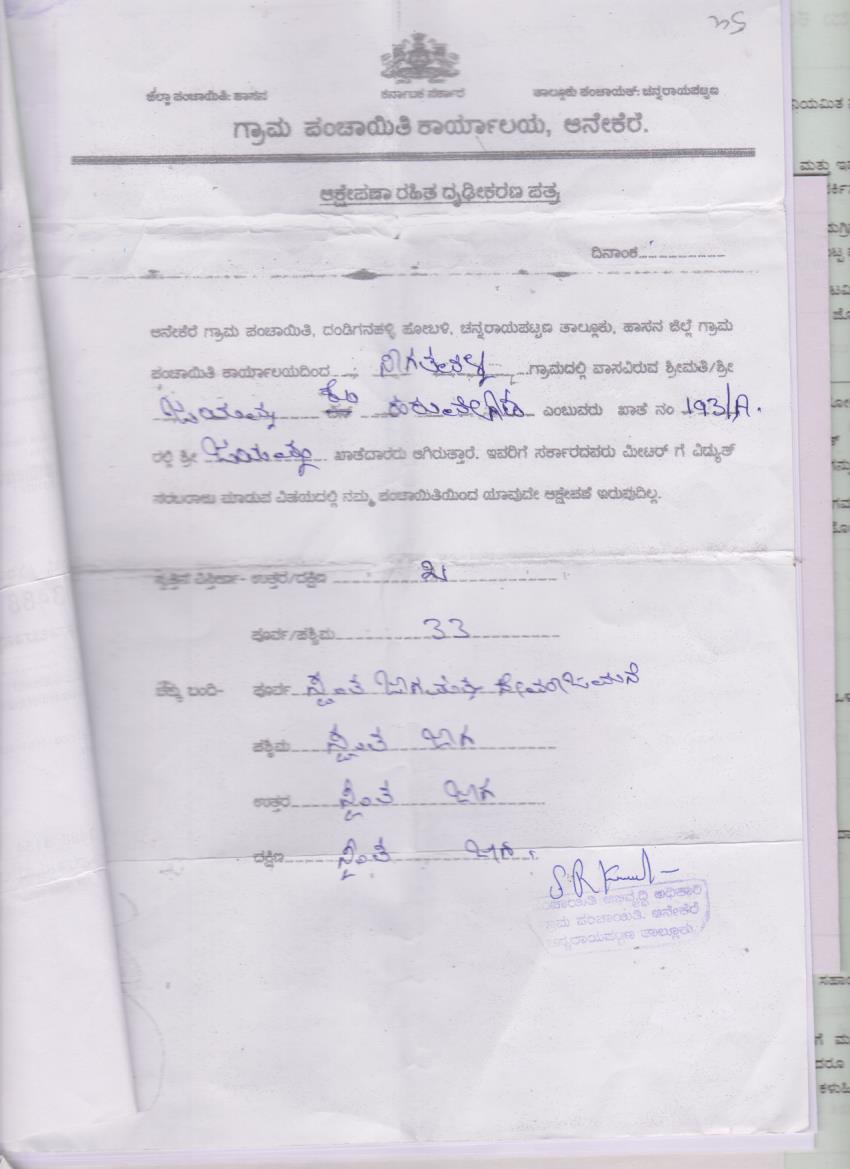 ಕರ್ನಾಟಕ ಸರ್ಕಾರ
ಜಿಲ್ಲಾ ಪಂಚಾಯಿತಿ: ಹಾಸನ
ತಾಲ್ಲೂಕು ಪಂಚಾಯತ್: ಚನ್ನರಾಯಪಟ್ಟಣ
ಗ್ರಾಮ ಪಂಚಾಯಿತಿ ಕಾರ್ಯಾಲಯ, ಆನೇಕೆರೆ.
ಆಕ್ಷೇಪಣಾ ರಹಿತ ದೃಢೀಕರಣ ಪತ್ರ
ದಿನಾಂಕ
ಆನೇಕೆರೆ ಗ್ರಾಮ ಪಂಚಾಯಿತಿ, ದಂಡಿಗನಹಳ್ಳಿ ಹೋಬಳಿ, ಚನ್ನರಾಯಪಟ್ಟಣ ತಾಲ್ಲೂಕು, ಹಾಸನ ಜಿಲ್ಲೆ ಗ್ರಾಮ
ಪಂಚಾಯಿತಿ ಕಾರ್ಯಾಲಯದಿಂದ ಗ್ರಾಮದಲ್ಲಿ ವಾಸವಿರುವ ಶ್ರೀಮತಿ/ಶ್ರೀ
ಜಯಮ್ಮ ಕೋಂ ಎಂಬುವರು ಖಾತೆ ನಂ 193/A.
ರಲ್ಲಿ ಶ್ರೀ ಜಯಮ್ಮ ಖಾತೆದಾರರು ಆಗಿರುತ್ತಾರೆ. ಇವರಿಗೆ ಸರ್ಕಾರದವರು ಮೀಟರ್ ಗೆ ವಿದ್ಯುತ್
ಸರಬರಾಜು ಮಾಡುವ ವಿಷಯದಲ್ಲಿ ನಮ್ಮ ಪಂಚಾಯಿತಿಯಿಂದ ಯಾವುದೇ ಆಕ್ಷೇಪಣೆ ಇರುವುದಿಲ್ಲ.
ಉತ್ತರ/ದಕ್ಷಿಣ
ಪೂರ್ವ/ಪಶ್ಚಿಮ 33
ಚೆಕ್ಕು ಬಂದಿ- ಪೂರ್ವ ಸ್ವಂತ ಜಾಗ ಮತ್ತು
ಪಶ್ಚಿಮ ಸ್ವಂತ ಜಾಗ
ಉತ್ತರ ಸ್ವಂತ ಜಾಗ
ದಕ್ಷಿಣ ಸ್ವಂತ ಜಾಗ.
ಪಂಚಾಯಿತಿ ಅಭಿವೃದ್ಧಿ ಅಧಿಕಾರಿ
ಗ್ರಾಮ ಪಂಚಾಯಿತಿ, ಆನೇಕೆರೆ
ಚನ್ನರಾಯಪಟ್ಟಣ ತಾಲ್ಲೂಕು.